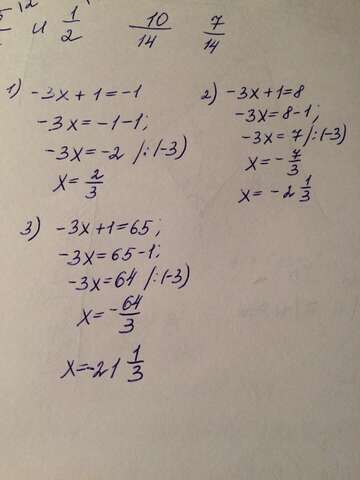 и 1/2 10/14 7/14
1) -3x+1=-1
-3x=-1-1;
-3x=-2 /:(-3)
x=2/3
2) -3x+1=8
-3x=8-1;
-3x=7 /:(-3)
x=-7/3
x=-2 1/3
3) -3x+1=65;
-3x=65-1;
-3x=64 /:(-3)
x=-64/3
x=-21 1/3